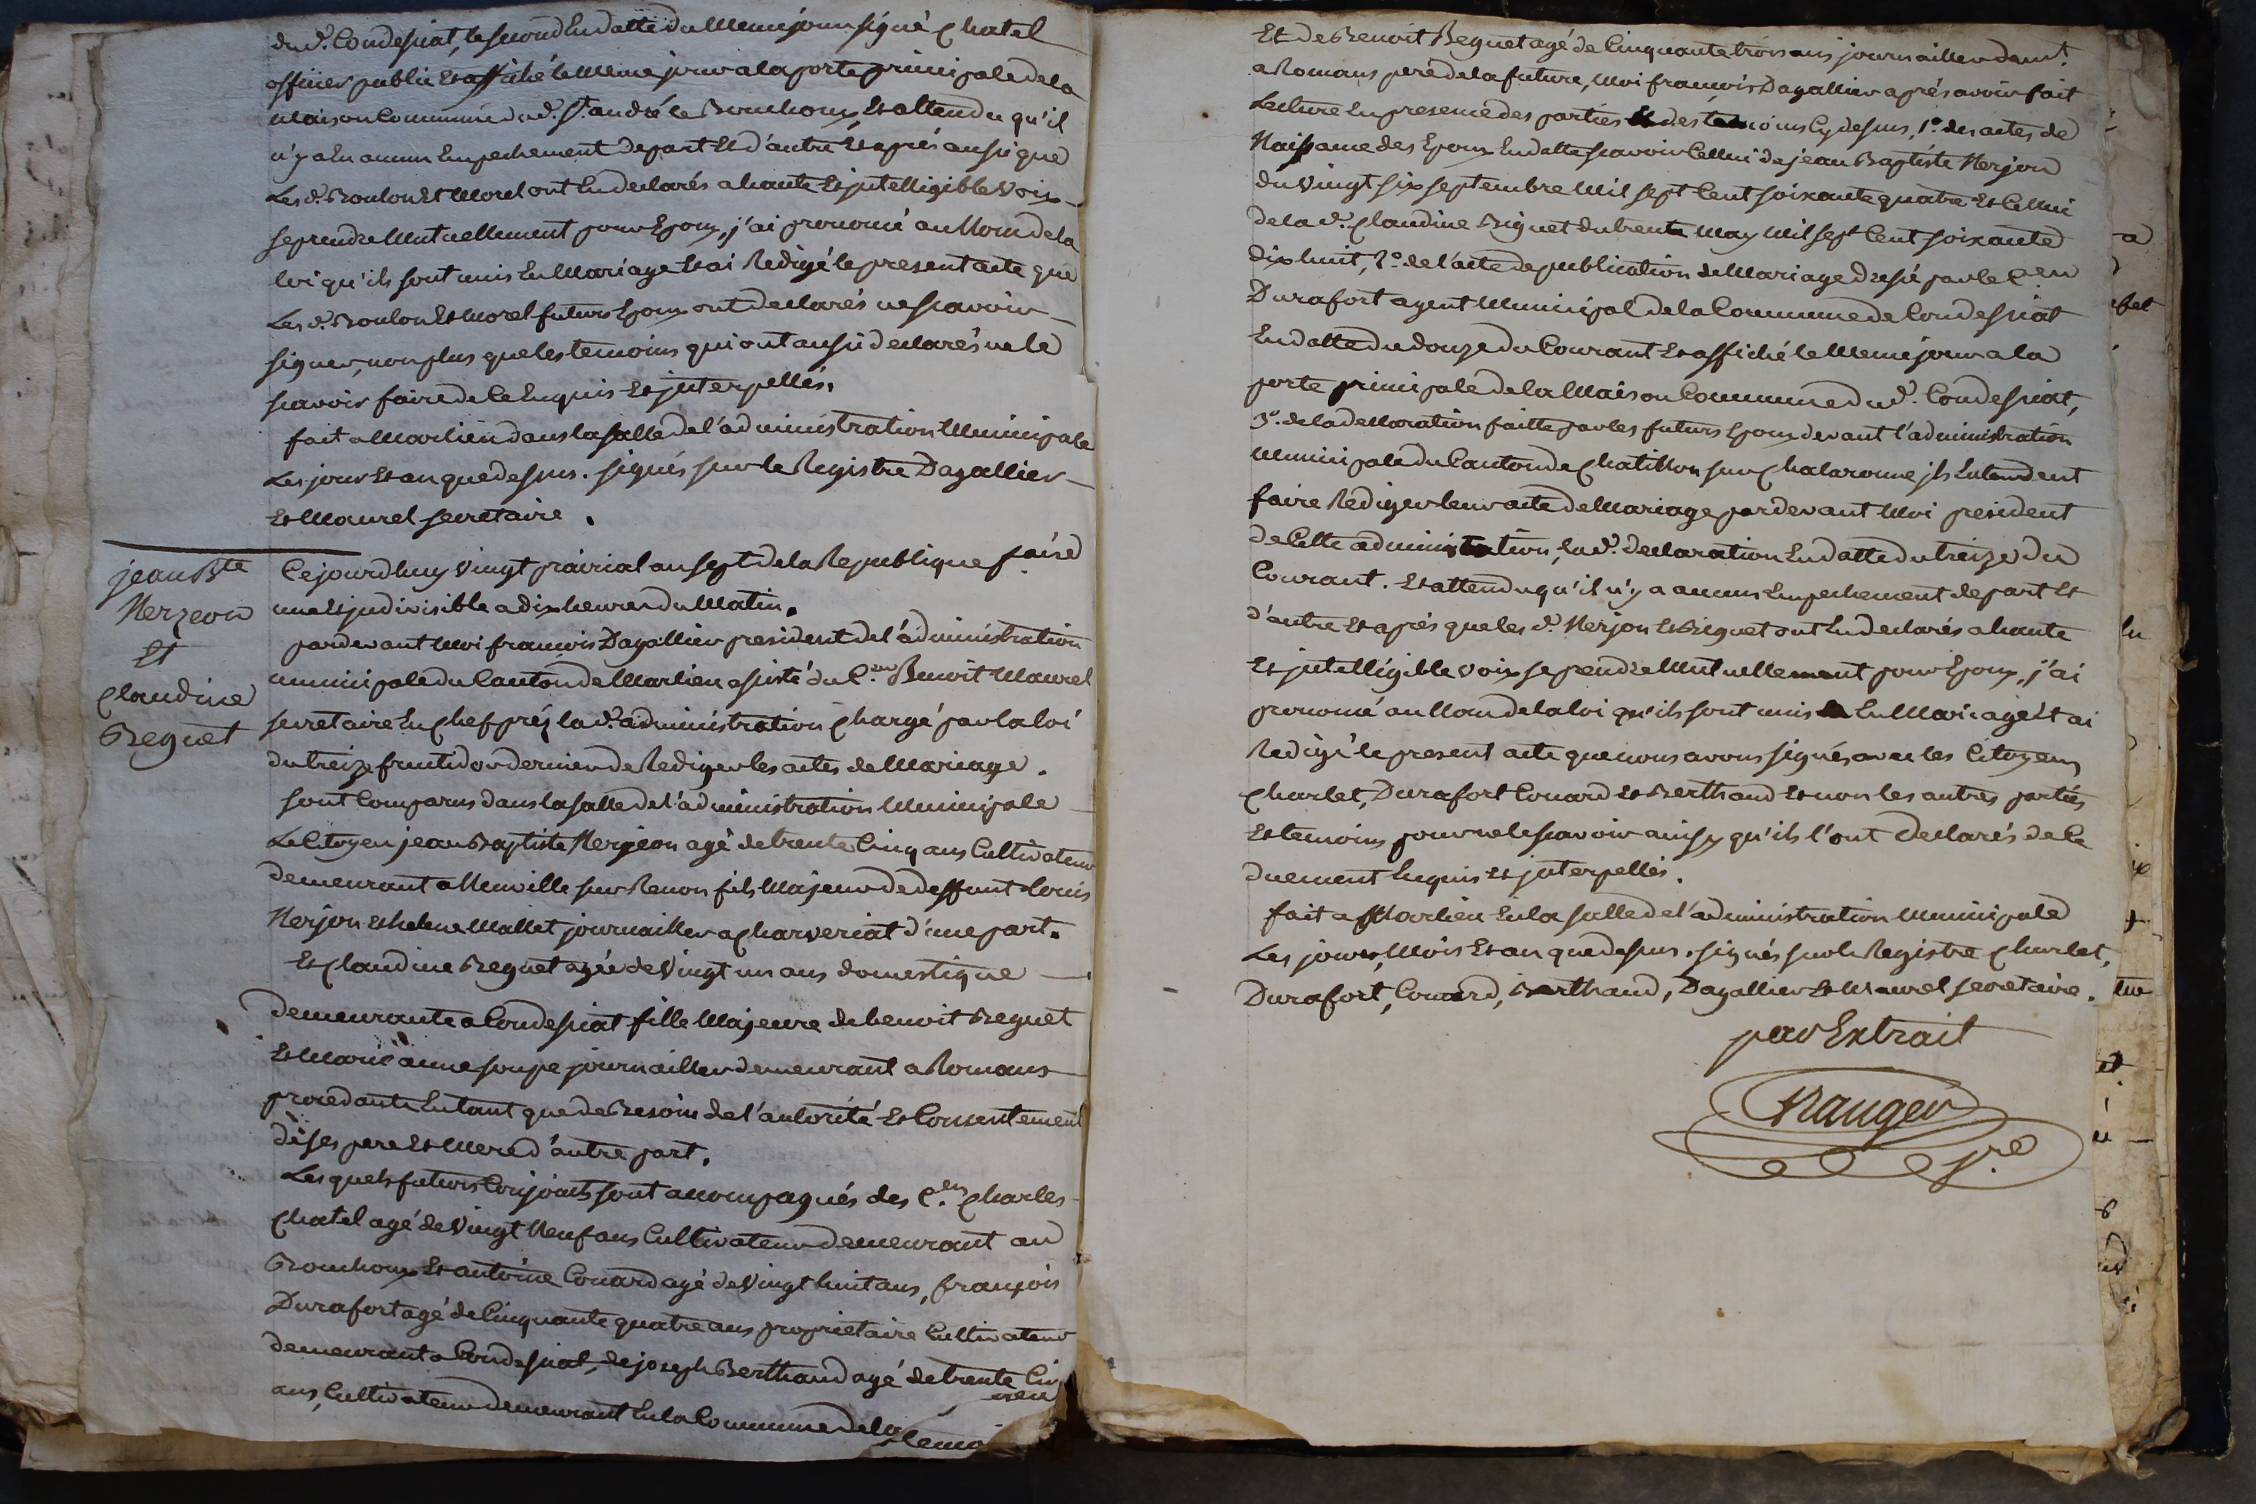 dud. Condessiat, le second En datte du Meme jour signé Chatel
officier public Et affiché le Meme jour a la porte principale de la
Maison Commune dud. St. andré le Bouchoux, Et attendu qu'il
n'y a Eu aucun Empechement de part Et d'autre Et aprés aussi que
Les d. Boulon Et Morel ont Eu declarés a haute Et jntelligible Voix
se prendre Mutuellement pour Epoux, j'ai prononcé au Nom de la
loi qu'ils sont unis En Mariage Et ai Redigé le present acte que
Les d. Boulon Et Morel futurs Epoux ont declarés ne scavoir
signer, non plus que les temoins qui ont aussi declarés ne le
scavoir faire de Ce Enquis Et jnterpellés.
fait a Marlieu dans la salle de l'administration Municipale
Les jour Et an que dessus. signés sur le Registre Dagallier
Et Maurel secretaire.
jean Bte
Merzeon
Et
Claudine
Beguet
Cejourdhuy Vingt prairial an sept de la Republique française
une Et jndivisible a dix heures du Matin.
pardevant Moi francois Dagallier president de l'administration
municipale du Canton de Marlieu assisté du C.en Benoit Maurel
secretaire En Chef prés lad. administration Chargé par la loi
du treize fructidor dernier de Rediger les actes de Mariage.
sont Comparus dans la salle de l'administration Municipale
Le Citoyen jean Baptiste Merjeon agé de trente Cinq ans Cultivateur
demeurant a Neuville sur Renon fils Majeur de deffunt Louis
Merjon Et helene Mallet journaillier a Charveriat d'une part.
Et Claudine Beguet agée de Vingt un ans domestique
demeurante a Condessiat fille Majeure de benoit Beguet
Et Marie anne soupe journaillier demeurant a Romans
procedante En tant que de Besoin de l'autorité Et Consentement
de ses pere Et Mere d'autre part.
Les quels futurs Conjoints sont accompagnés des C.ens Charles
Chatel agé de Vingt Neuf ans Cultivateur demeurant au
Bouchoux Et antoine Couard agé de Vingt huit ans, françois
Durafort agé de Cinquante quatre ans proprietaire Cultivateur
demeurant a Condessiat, de joseph Berthaud agé de trente Cin
ans, Cultivateur demeurant En la Commune de la
Et de Benoit Beguet agé de Cinquante trois ans journaillier demt.
a Romans pere de la future, Moi francois Dagallier aprés avoir fait
Lecture En presence des parties Et des temoins Cy dessus, 1.° des actes de
Naissance des Epoux En datte scavoir Cellui de jean Baptiste Merjon
du Vingt six septembre Mil sept Cent soixante quatre Et Cellui
de la d. Claudine Biguet du trente May Mil sept Cent soixante
dix huit, 2.° de l'acte de publication de Mariage dressé par le C.en
Durafort agent Municipal de la Commune de Condessiat
En datte du douze du Courant Et affiché le Meme jour a la
porte principale de la Maison Commune dud. Condessiat,
3.° de la declaration faitte par les futurs Epoux devant l'administration
Municipale du Canton de Chatillon sur Chalaronne jls Entendent
faire Rediger leur acte de Mariage pardevant Moi president
de Cette administration, lad. declaration En datte du treize du
Courant. Et attendu qu'il n'y a aucuns Empechement de part Et
d'autre Et aprés que les d. Merjon Et Biguet ont Eu declarés a haute
Et jntelligible Voix se prendre Mutuellement pour Epoux, j'ai
prononcé au Nom de la loi qu'ils sont unis En Mariage Et ai
Redigé le present acte que nous avons signés avec les Citoyens
Charlet, Durafort Couard Et Berthaud Et non les autres parties
Et temoins pour ne le scavoir ainsy qu'ils l'ont declarés de Ce
duement Enquis Et jnterpellés.
fait a Marlieu En la salle de l'administration Municipale
Les jour, Mois Et an que dessus. signés sur le Registre Charlet,
Durafort, Couard, Berthaud, Dagallier Et Maurel secretaire.
par Extrait